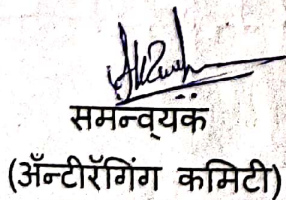 समन्व्यक
(अँन्टीरॅगिंग कमिटी)